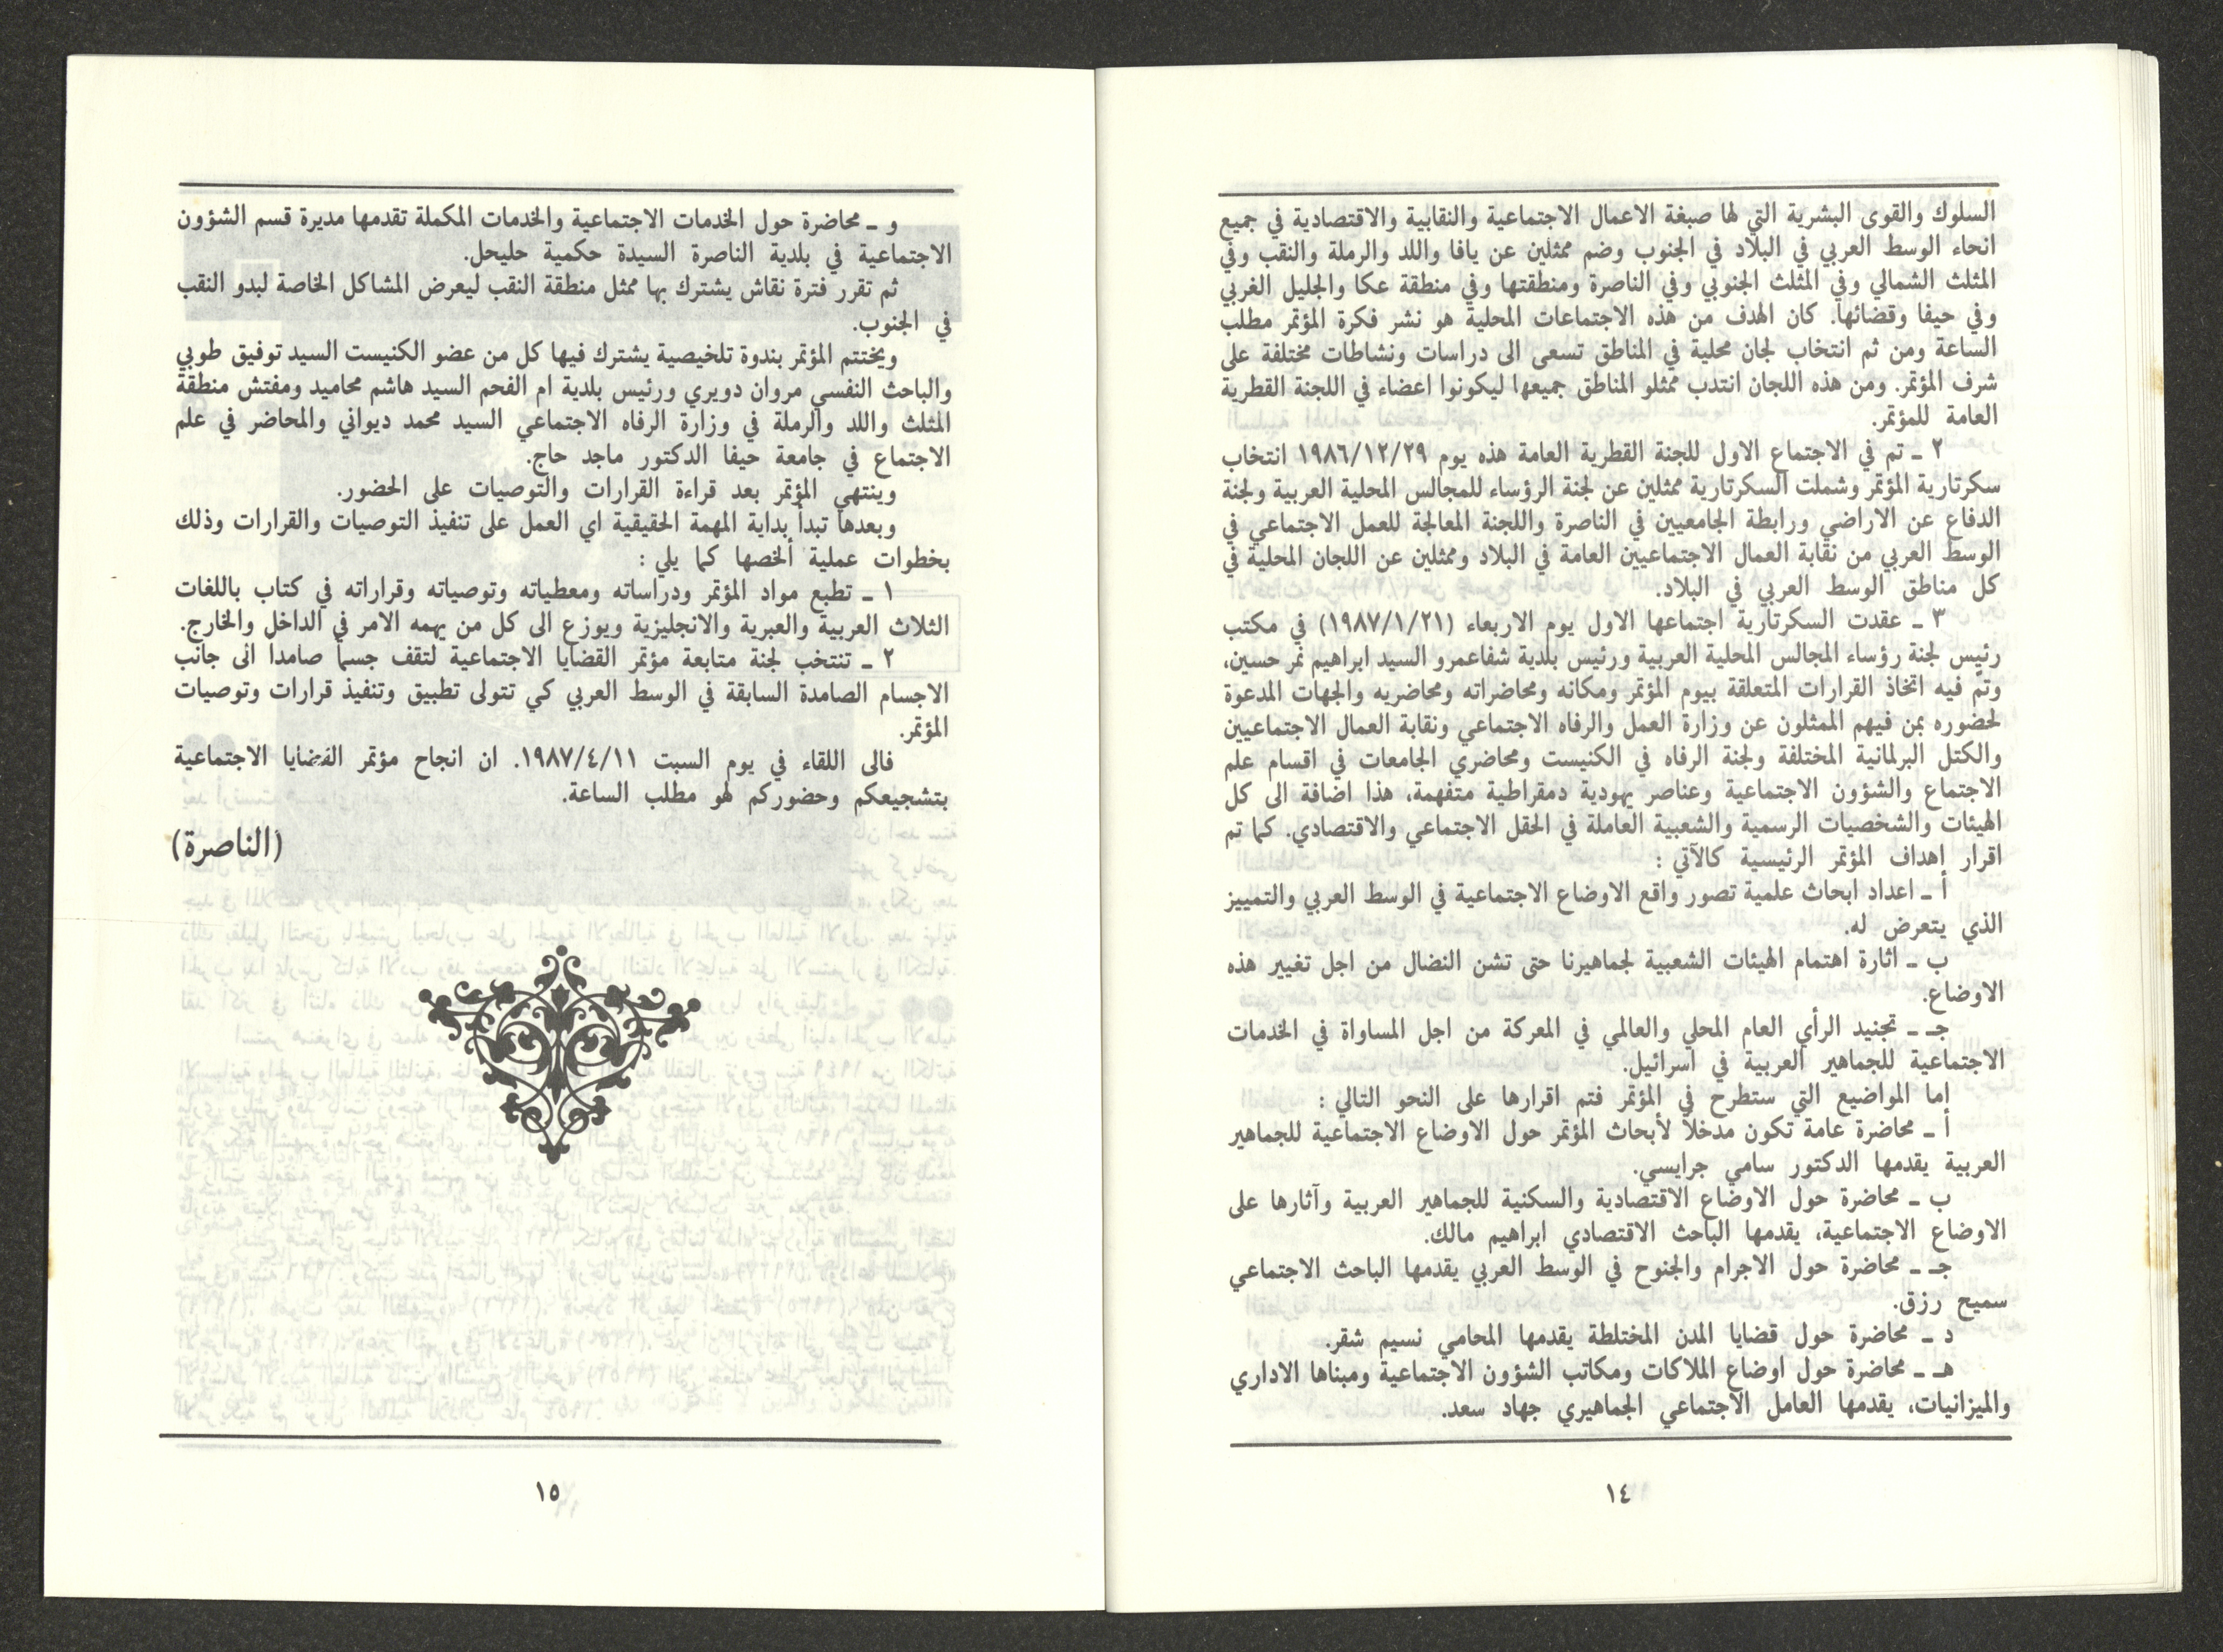 السلوك والقوى البشرية التي لها صبغة الاعمال الاجتماعية والنقابية والاقتصادية في جميع
انحاء الوسط العربي في البلاد في الجنوب وضم ممثلين عن يافا واللد والرملة والنقب وفي
المثلث الشمالي وفي المثلث الجنوبي وفي الناصرة ومنطقتها وفي منطقة عكا والجليل الغربي
وفي حيفا وقضائها. كان الهدف من هذه الاجتماعات المحلية هو نشر فكرة المؤتمر مطلب
الساعة ومن ثم انتخاب لجان محلية في المناطق تسعى الى دراسات ونشاطات مختلفة على
شرف المؤتمر. ومن هذه اللجان انتدب ممثلو المناطق جميعها ليكونوا اعضاء في اللجنة القطرية
العامة للمؤتمر.
٢ ـ تم في الاجتماع الاول للجنة القطرية العامة هذه يوم ١٩٨٦/١٢/٢٩ انتخاب
سكرتارية المؤتمر وشملت السكرتارية ممثلين عن لجنة الرؤساء للمجالس المحلية العربية ولجنة
الدفاع عن الاراضي ورابطة الجامعيين في الناصرة واللجنة المعالجة للعمل الاجتماعي في
الوسط العربي من نقابة العمال الاجتماعيين العامة في البلاد وممثلين عن اللجان المحلية في
كل مناطق الوسط العربي في البلاد.
٣ ـ عقدت السكرتارية اجتماعها الاول يوم الاربعاء (١٩٨٧/١/٢١) في مكتب
رئيس لجنة رؤساء المجالس المحلية العربية ورئيس بلدية شفاعمرو السيد ابراهيم نمر حسين،
وتم فيه اتخاذ القرارات المتعلقة بيوم المؤتمر ومكانه ومحاضراته ومحاضريه والجهات المدعوة
لحضوره بمن فيهم الممثلون عن وزارة العمل والرفاه الاجتماعي ونقابة العمال الاجتماعيين
والكتل البرلمانية المختلفة ولجنة الرفاه في الكنيست ومحاضري الجامعات في اقسام علم
الاجتماع والشؤون الاجتماعية وعناصر يهودية دمقراطية متفهمة، هذا اضافة الى كل
الهيئات والشخصيات الرسمية والشعبية العاملة في الحقل الاجتماعي والاقتصادي. كما تم
اقرار اهداف المؤتمر الرئيسية كالآتي :
أ ـ اعداد ابحاث علمية تصور واقع الاوضاع الاجتماعية في الوسط العربي والتمييز
الذي يتعرض له.
ب ـ اثارة اهتمام الهيئات الشعبية لجماهيرنا حتى تشن النضال من اجل تغيير هذه
الاوضاع.
جـ ـ تجنيد الرأي العام المحلي والعالمي في المعركة من اجل المساواة في الخدمات
الاجتماعية للجماهير العربية في اسرائيل.
اما المواضيع التي ستطرح في المؤتمر فتم اقرارها على النحو التالي :
أ ـ محاضرة عامة تكون مدخلاً لأبحاث المؤتمر حول الاوضاع الاجتماعية للجماهير
العربية يقدمها الدكتور سامي جرايسي.
ب ـ محاضرة حول الاوضاع الاقتصادية والسكنية للجماهير العربية وآثارها على
الاوضاع الاجتماعية، يقدمها الباحث الاقتصادي ابراهيم مالك.
جـ ـ محاضرة حول الاجرام والجنوح في الوسط العربي يقدمها الباحث الاجتماعي
سميح رزق.
د ـ محاضرة حول قضايا المدن المختلطة يقدمها المحامي نسيم شقر.
هـ ـ محاضرة حول اوضاع الملاكات ومكاتب الشؤون الاجتماعية ومبناها الاداري
والميزانيات، يقدمها العامل الاجتماعي الجماهيري جهاد سعد.
١٤
و ـ محاضرة حول الخدمات الاجتماعية والخدمات المكملة تقدمها مديرة قسم الشؤون
الاجتماعية في بلدية الناصرة السيدة حكمية حليحل.
ثم تقرر فترة نقاش يشترك بها ممثل منطقة النقب ليعرض المشاكل الخاصة لبدو النقب
في الجنوب.
ويختتم المؤتمر بندوة تلخيصية يشترك فيها كل من عضو الكنيست السيد توفيق طوبي
والباحث النفسي مروان دويري ورئيس بلدية ام الفحم السيد هاشم محاميد ومفتش منطقة
المثلث واللد والرملة في وزارة الرفاه الاجتماعي السيد محمد ديواني والمحاضر في علم
الاجتماع في جامعة حيفا الدكتور ماجد حاج.
وينتهي المؤتمر بعد قراءة القرارات والتوصيات على الحضور.
وبعدها تبدأ بداية المهمة الحقيقية اي العمل على تنفيذ التوصيات والقرارات وذلك
بخطوات عملية ألخصها كما يلي :
١ ـ تطبع مواد المؤتمر ودراساته ومعطياته وتوصياته وقراراته في كتاب باللغات
الثلاث العربية والعبرية والانجليزية ويوزع الى كل من يهمه الامر في الداخل والخارج.
٢ ـ تنتخب لجنة متابعة مؤتمر القضايا الاجتماعية لتقف جسماً صامدا الى جانب
الاجسام الصامدة السابقة في الوسط العربي كي تتولى تطبيق وتنفيذ قرارات وتوصيات
المؤتمر.
فالى اللقاء في يوم السبت ١٩٨٧/٤/١١. ان انجاح مؤتمر القضايا الاجتماعية
بتشجيعكم وحضوركم لهو مطلب الساعة.
(الناصرة)
١٥